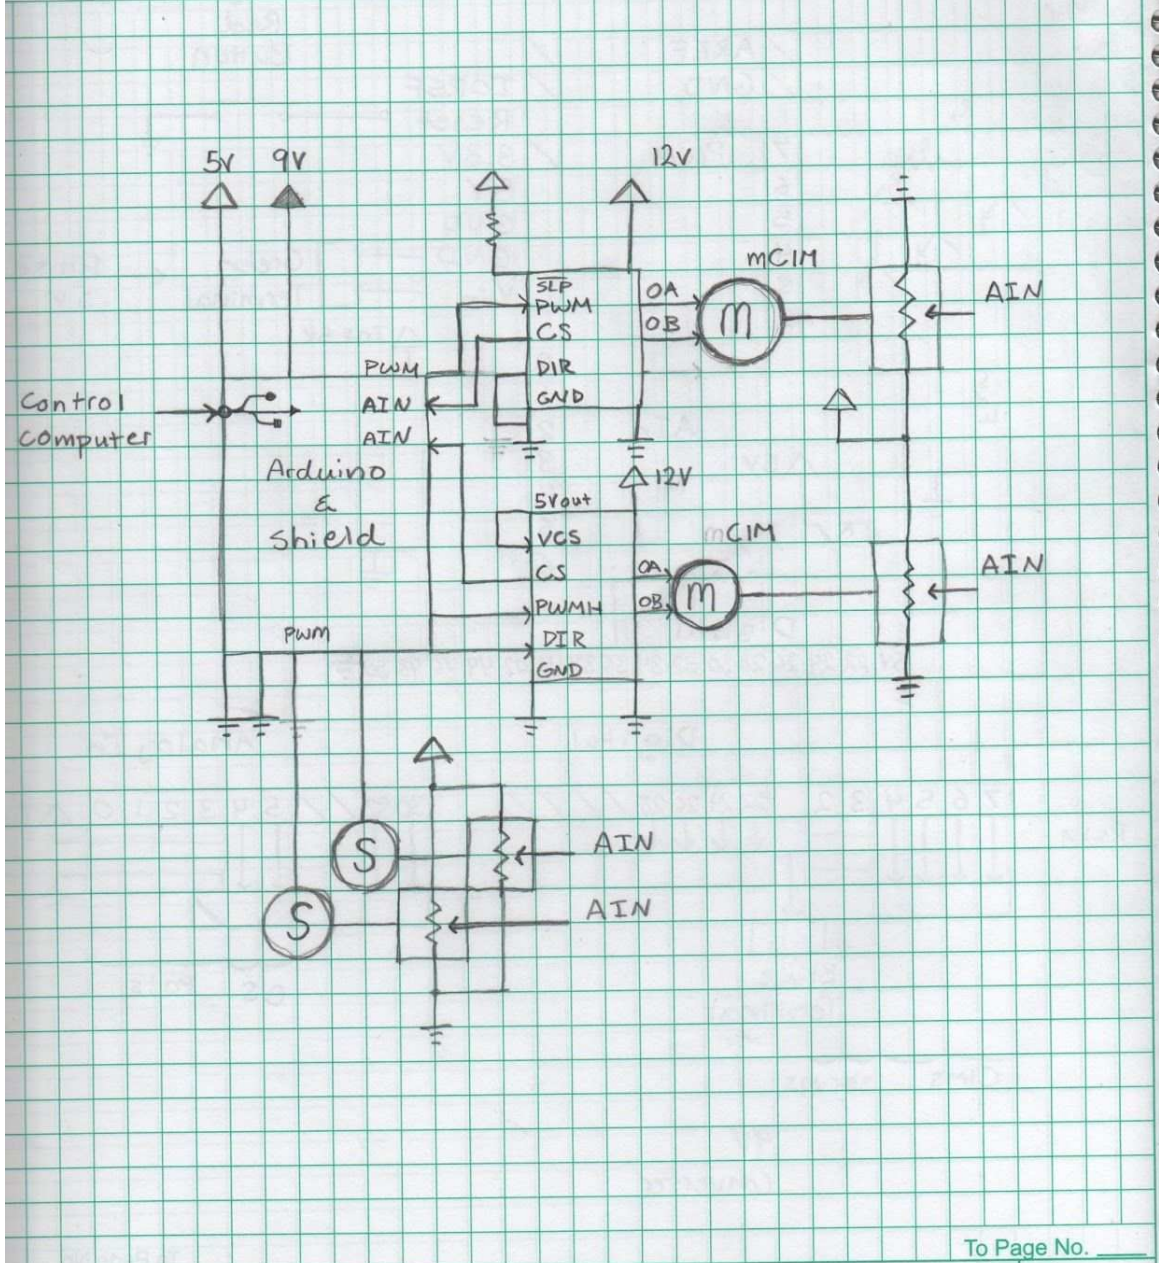 5V 9V
12V
mCIM
SLP
PWM
CS
DIR
GND
OA
OB
M
AIN
PWM
AIN
AIN
Control
computer
Arduino
&
Shield
12V
5Vout
VCS
CS
PWMH
DIR
GND
mCIM
OA
OB
M
AIN
PWM
S
AIN
S
AIN
To Page No.